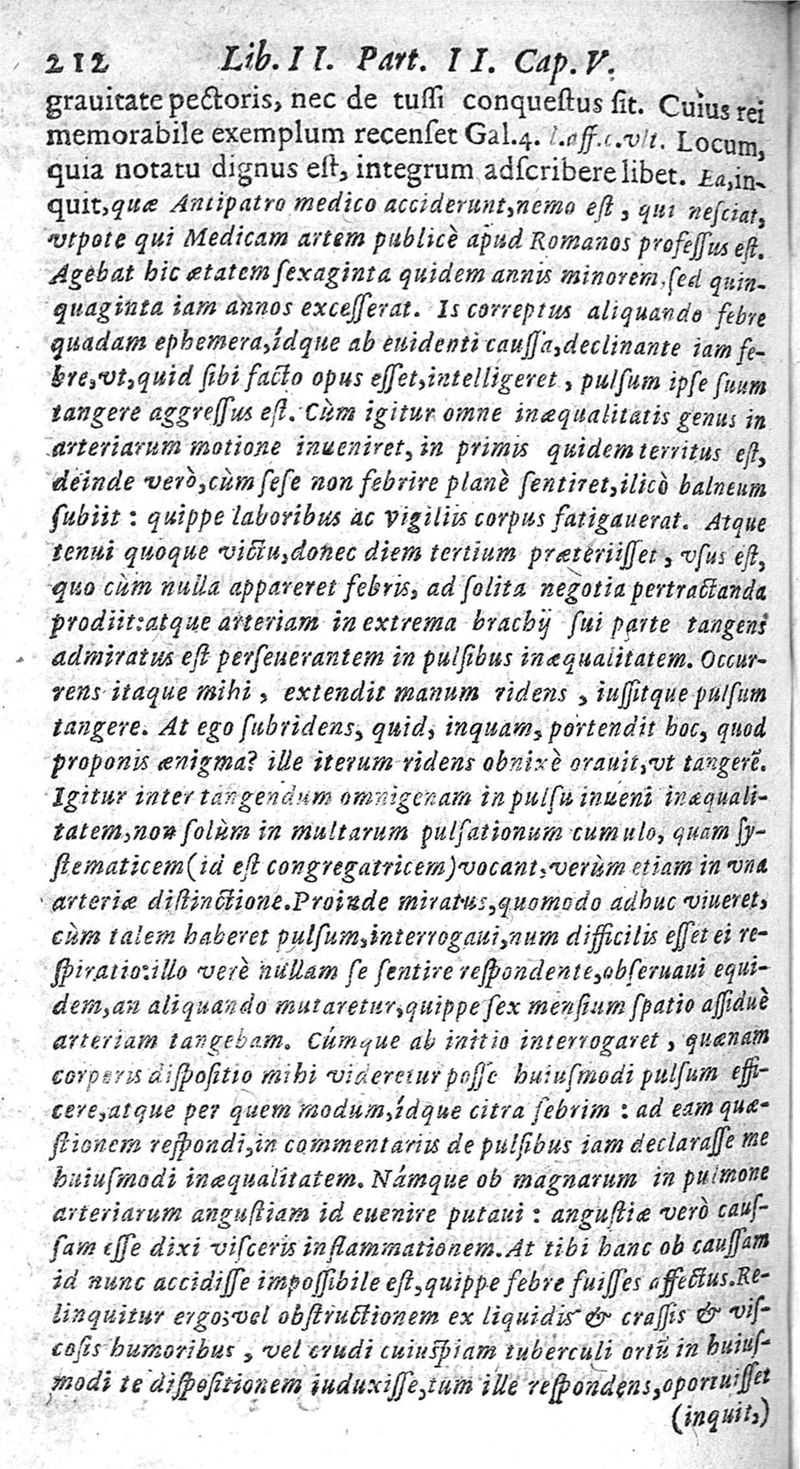 212 Lib. II. Part. II. Cap. V.
grauitate pectoris, nec de tuſſi conqueſtus ſit. Cuius rei
memorabile exemplum recenſet Gal. 4. l. aff. c. vlt. Locum,
quia notatu dignus eſt, integrum adſcribere libet. Ea, in-
quit, quæ Antipatro medico acciderunt, nemo eſt, qui neſciat,
vtpote qui Medicam artem publicè apud Romanos profeſſus eſt.
Agebat hic ætatem ſexaginta quidem annis minorem, ſed quin-
quaginta iam annos exceſſerat. Is correptus aliquando febre
quadam ephemera, ídque ab euidenti cauſſa, declinante iam fe-
bre, vt, quid ſibi facto opus eſſet, intelligeret, pulſum ipſe ſuum
tangere aggreſſus eſt. Cùm igitur omne inæqualitatis genus in
arteriarum motione inueniret, in primis quidem territus eſt,
deinde verò, cùm ſeſe non febrire planè ſentiret, ilicò balneum
ſubiit : quippe laboribus ac vigiliis corpus fatigauerat. Atque
tenui quoque victu, donec diem tertium præteriiſſet, vſus eſt,
quo cùm nulla appareret febris, ad ſolita negotia pertractanda
prodiit: atque arteriam in extrema brachij ſui parte tangens
admiratus eſt perſeuerantem in pulſibus inæqualitatem. Occur-
rens itaque mihi, extendit manum ridens, iuſſitque pulſum
tangere. At ego ſubridens, quid, inquam, portendit hoc, quod
proponis ænigma? ille iterum ridens obnixè orauit, vt tangerē.
Igitur inter tangendum omnigenam in pulſu inueni inæquali-
tatem, non ſolùm in multarum pulſationum cumulo, quam ſy-
ſtematicem (id eſt congregatricem) vocant, verùm etiam in vna
arteriæ diſtinctione. Proinde miratus, quomodo adhuc viueret,
cùm talem haberet pulſum, interrogaui, num difficilis eſſet ei re-
ſpiratio: illo verè nullam ſe ſentire reſpondente, obſeruaui equi-
dem, an aliquando mutaretur, quippe ſex menſium ſpatio aſſiduè
arteriam tangebam. Cúmque ab initio interrogaret, quænam
corporis diſpoſitio mihi videretur poſſe huiuſmodi pulſum effi-
cere, atque per quem modum, ídque citra febrim : ad eam quæ-
ſtionem reſpondi, in commentariis de pulſibus iam declaraſſe me
huiuſmodi inæqualitatem. Námque ob magnarum in pulmone
arteriarum anguſtiam id euenire putaui : anguſtiæ verò cauſ-
ſam eſſe dixi viſceris inflammationem. At tibi hanc ob cauſſam
id nunc accidiſſe impoſſibile eſt, quippe febre fuiſſes affectus. Re-
linquitur ergo; vel obſtructionem ex liquidis & craſſis & viſ-
coſis humoribus, vel crudi cuiuſpiam tuberculi ortū in huiuſ-
modi te diſpoſitionem iuduxiſſe, tum ille reſpondens, oportuiſſet
(inquit,)